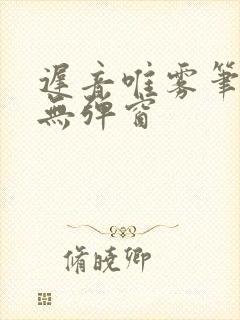 遲音唯雾筆
無彈窗
脩曉卿